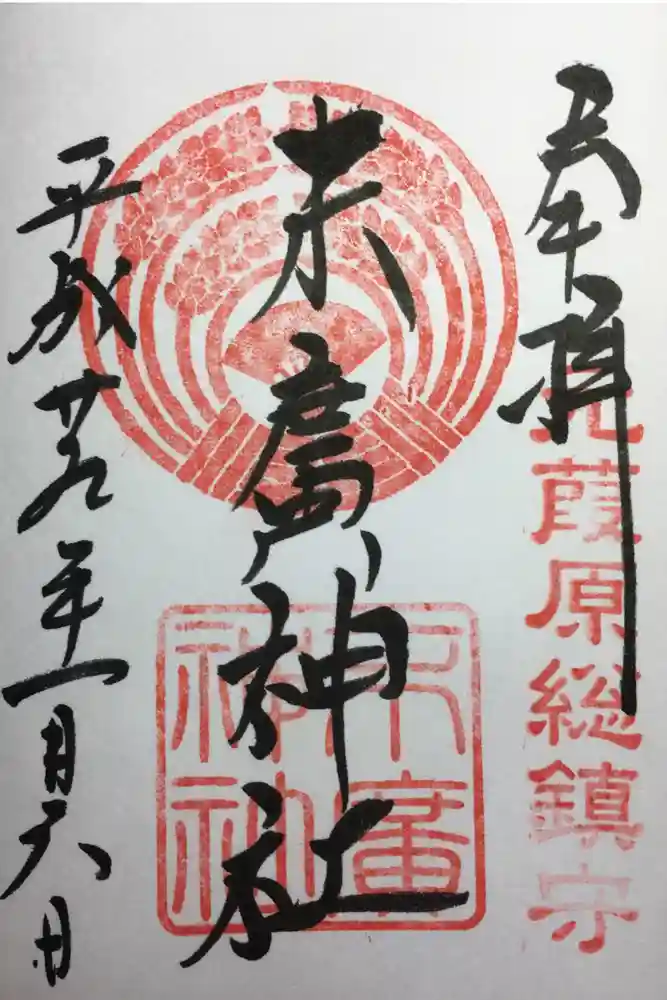 奉拝
元葭原総鎮守
末廣神社
末廣
神社
平成廿九年一月六日